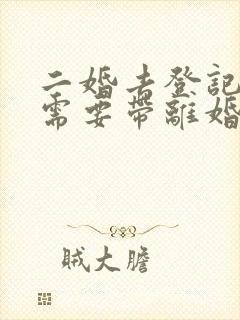 二婚去登記
需要帶離婚
賊大膽